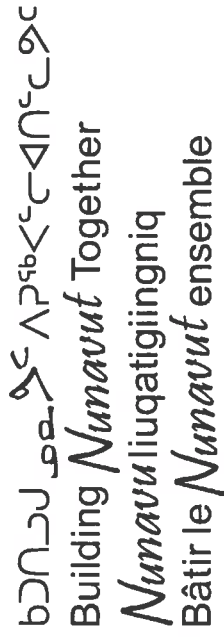 ᓄᓇᕗᑦ ᐱᕈᖅᐸᓪᓕᐊᑎᓪᓚᕗᑦ
Building Nunavut Together
Nunavuliuqatigiingniq
Bâtir le Nunavut ensemble